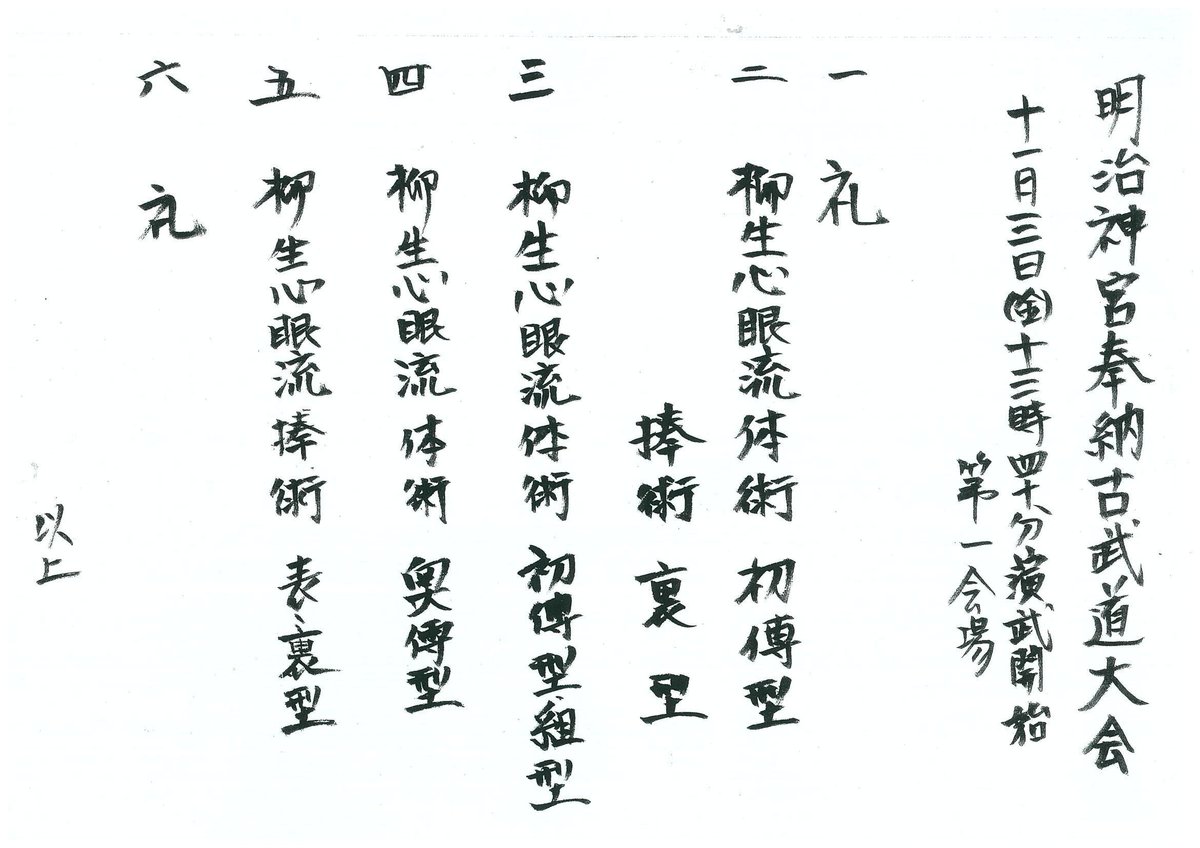 明治神宮奉納古武道大会
十一月三日(金)十三時四十八分演武開始
第一会場
一 礼
二 柳生心眼流体術 初傳型
捧術 裏型
三 柳生心眼流体術 初傳型・組型
四 柳生心眼流体術 奥傳型
五 柳生心眼流捧術 表・裏型
六 礼
以上